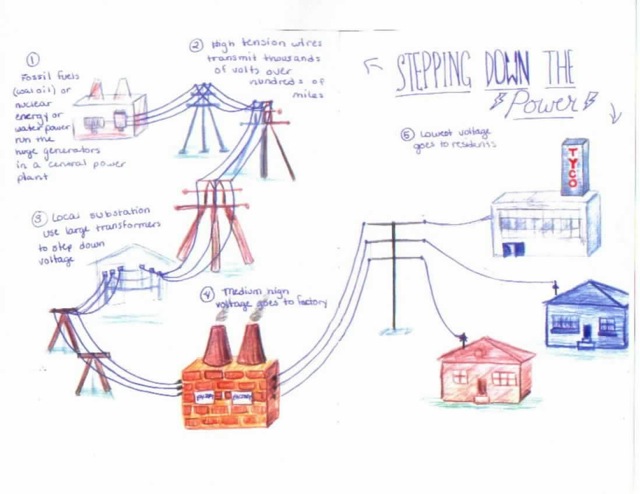 STEPPING DOWN THE
Power
1
Fossil fuels
(coal oil) or
nuclear
energy or
water power
run the
huge generators
in a central power
plant
2 High tension wires
transmit thousands
of volts over
hundreds of
miles
3 Local substation
use large transformers
to step down
voltage
4 Medium high
voltage goes to factory
FACTORY
5 Lowest voltage
goes to residents
TYCO